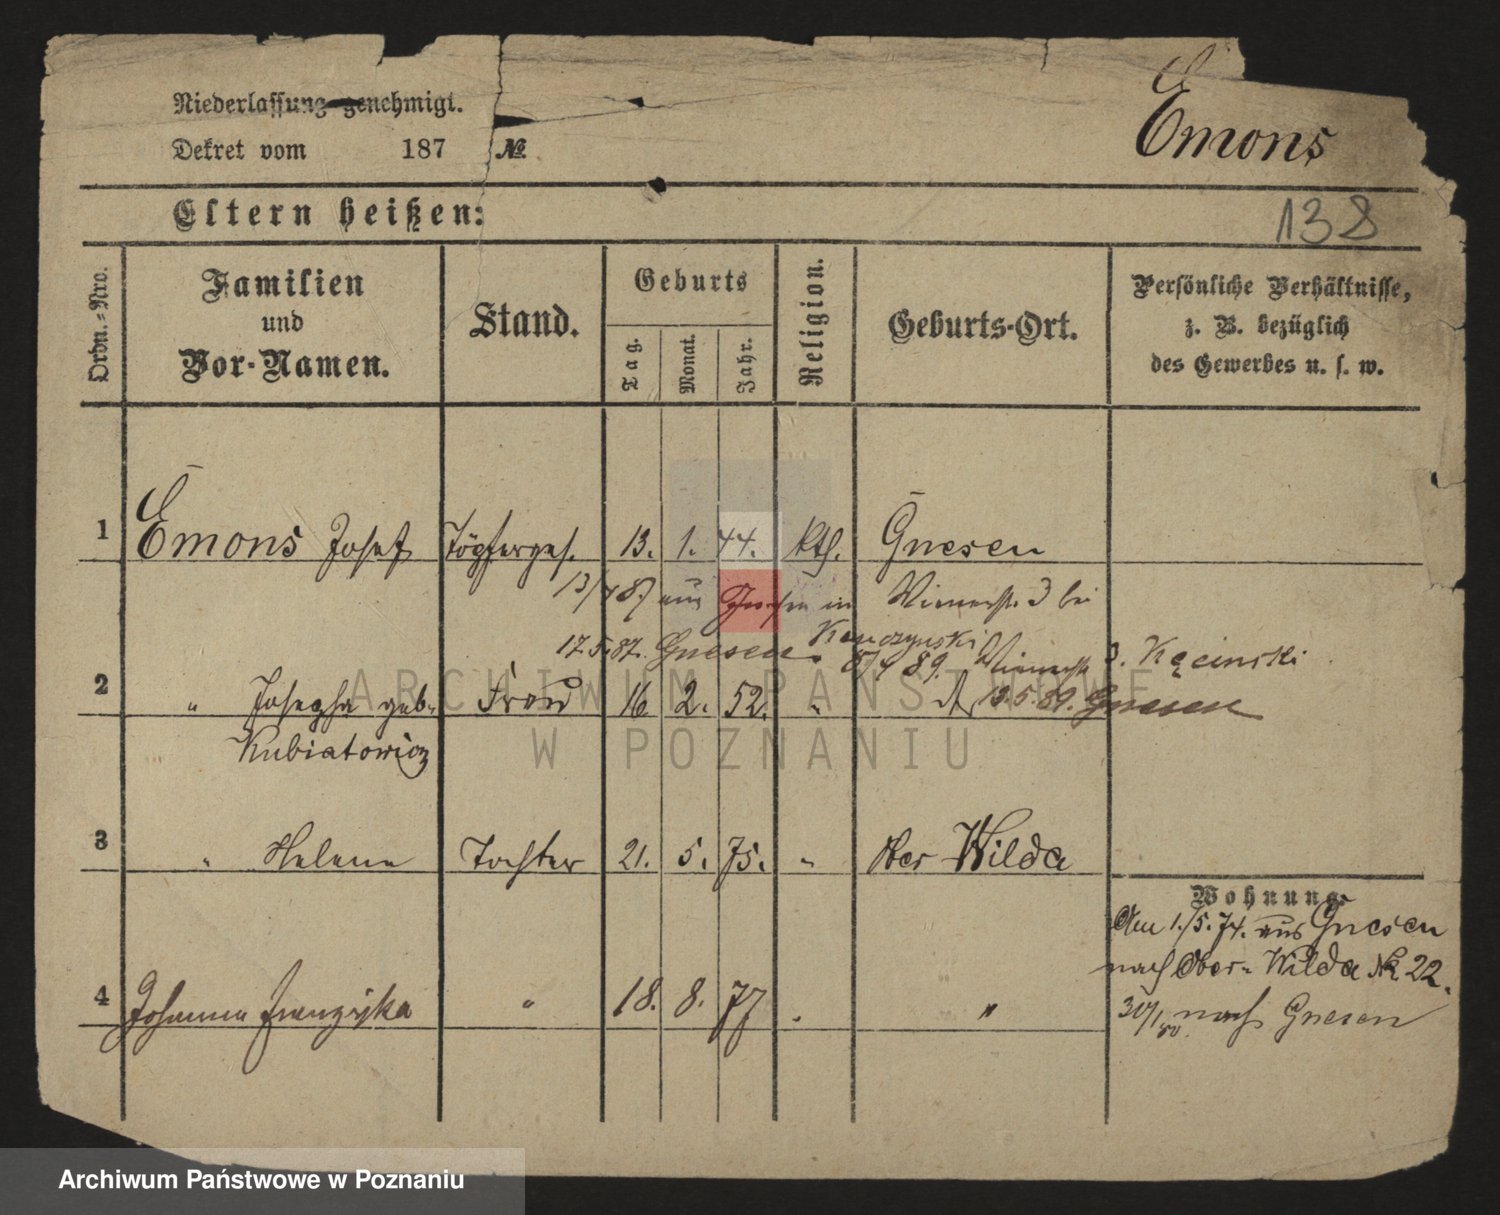 Niederlassung genehmigt.
Emons
Dekret vom 187 №
Eltern heißen:
138
Ordn.-Nro.
Familien und Vor-Namen.
Stand.
Geburts
Tag.
Monat.
Jahr.
Religion.
Geburts-Ort.
Persönliche Verhältnisse,
z. B. bezüglich
des Gewerbes u. s. w.
1 Emons Josef Töpferges. 13. 1. 44. kth. Gnesen
13/4 87 aus Gnesen in Wienerstr. 3 bei
Kauczynski
17.5.87. Gnesen
8/4 89. Wienerstr 3. Kąciński
2 " Josepha geb. Frau 16 2. 52. " 13.5.89. Gnesen
Kubiatowicz
3 " Helene Tochter 21. 5. 75. " Ober Wilda
Wohnung.
Am 1./5. 74. aus Gnesen
nach Ober-Wilda № 22.
4 Johanna Franziska " 18. 8. 77 " "
30/1 80. nach Gnesen
ARCHIWUM PAŃSTWOWE
W POZNANIU
Archiwum Państwowe w Poznaniu